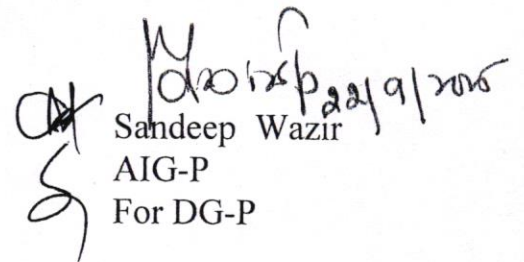 22/9/2025
Sandeep Wazir
AIG-P
For DG-P